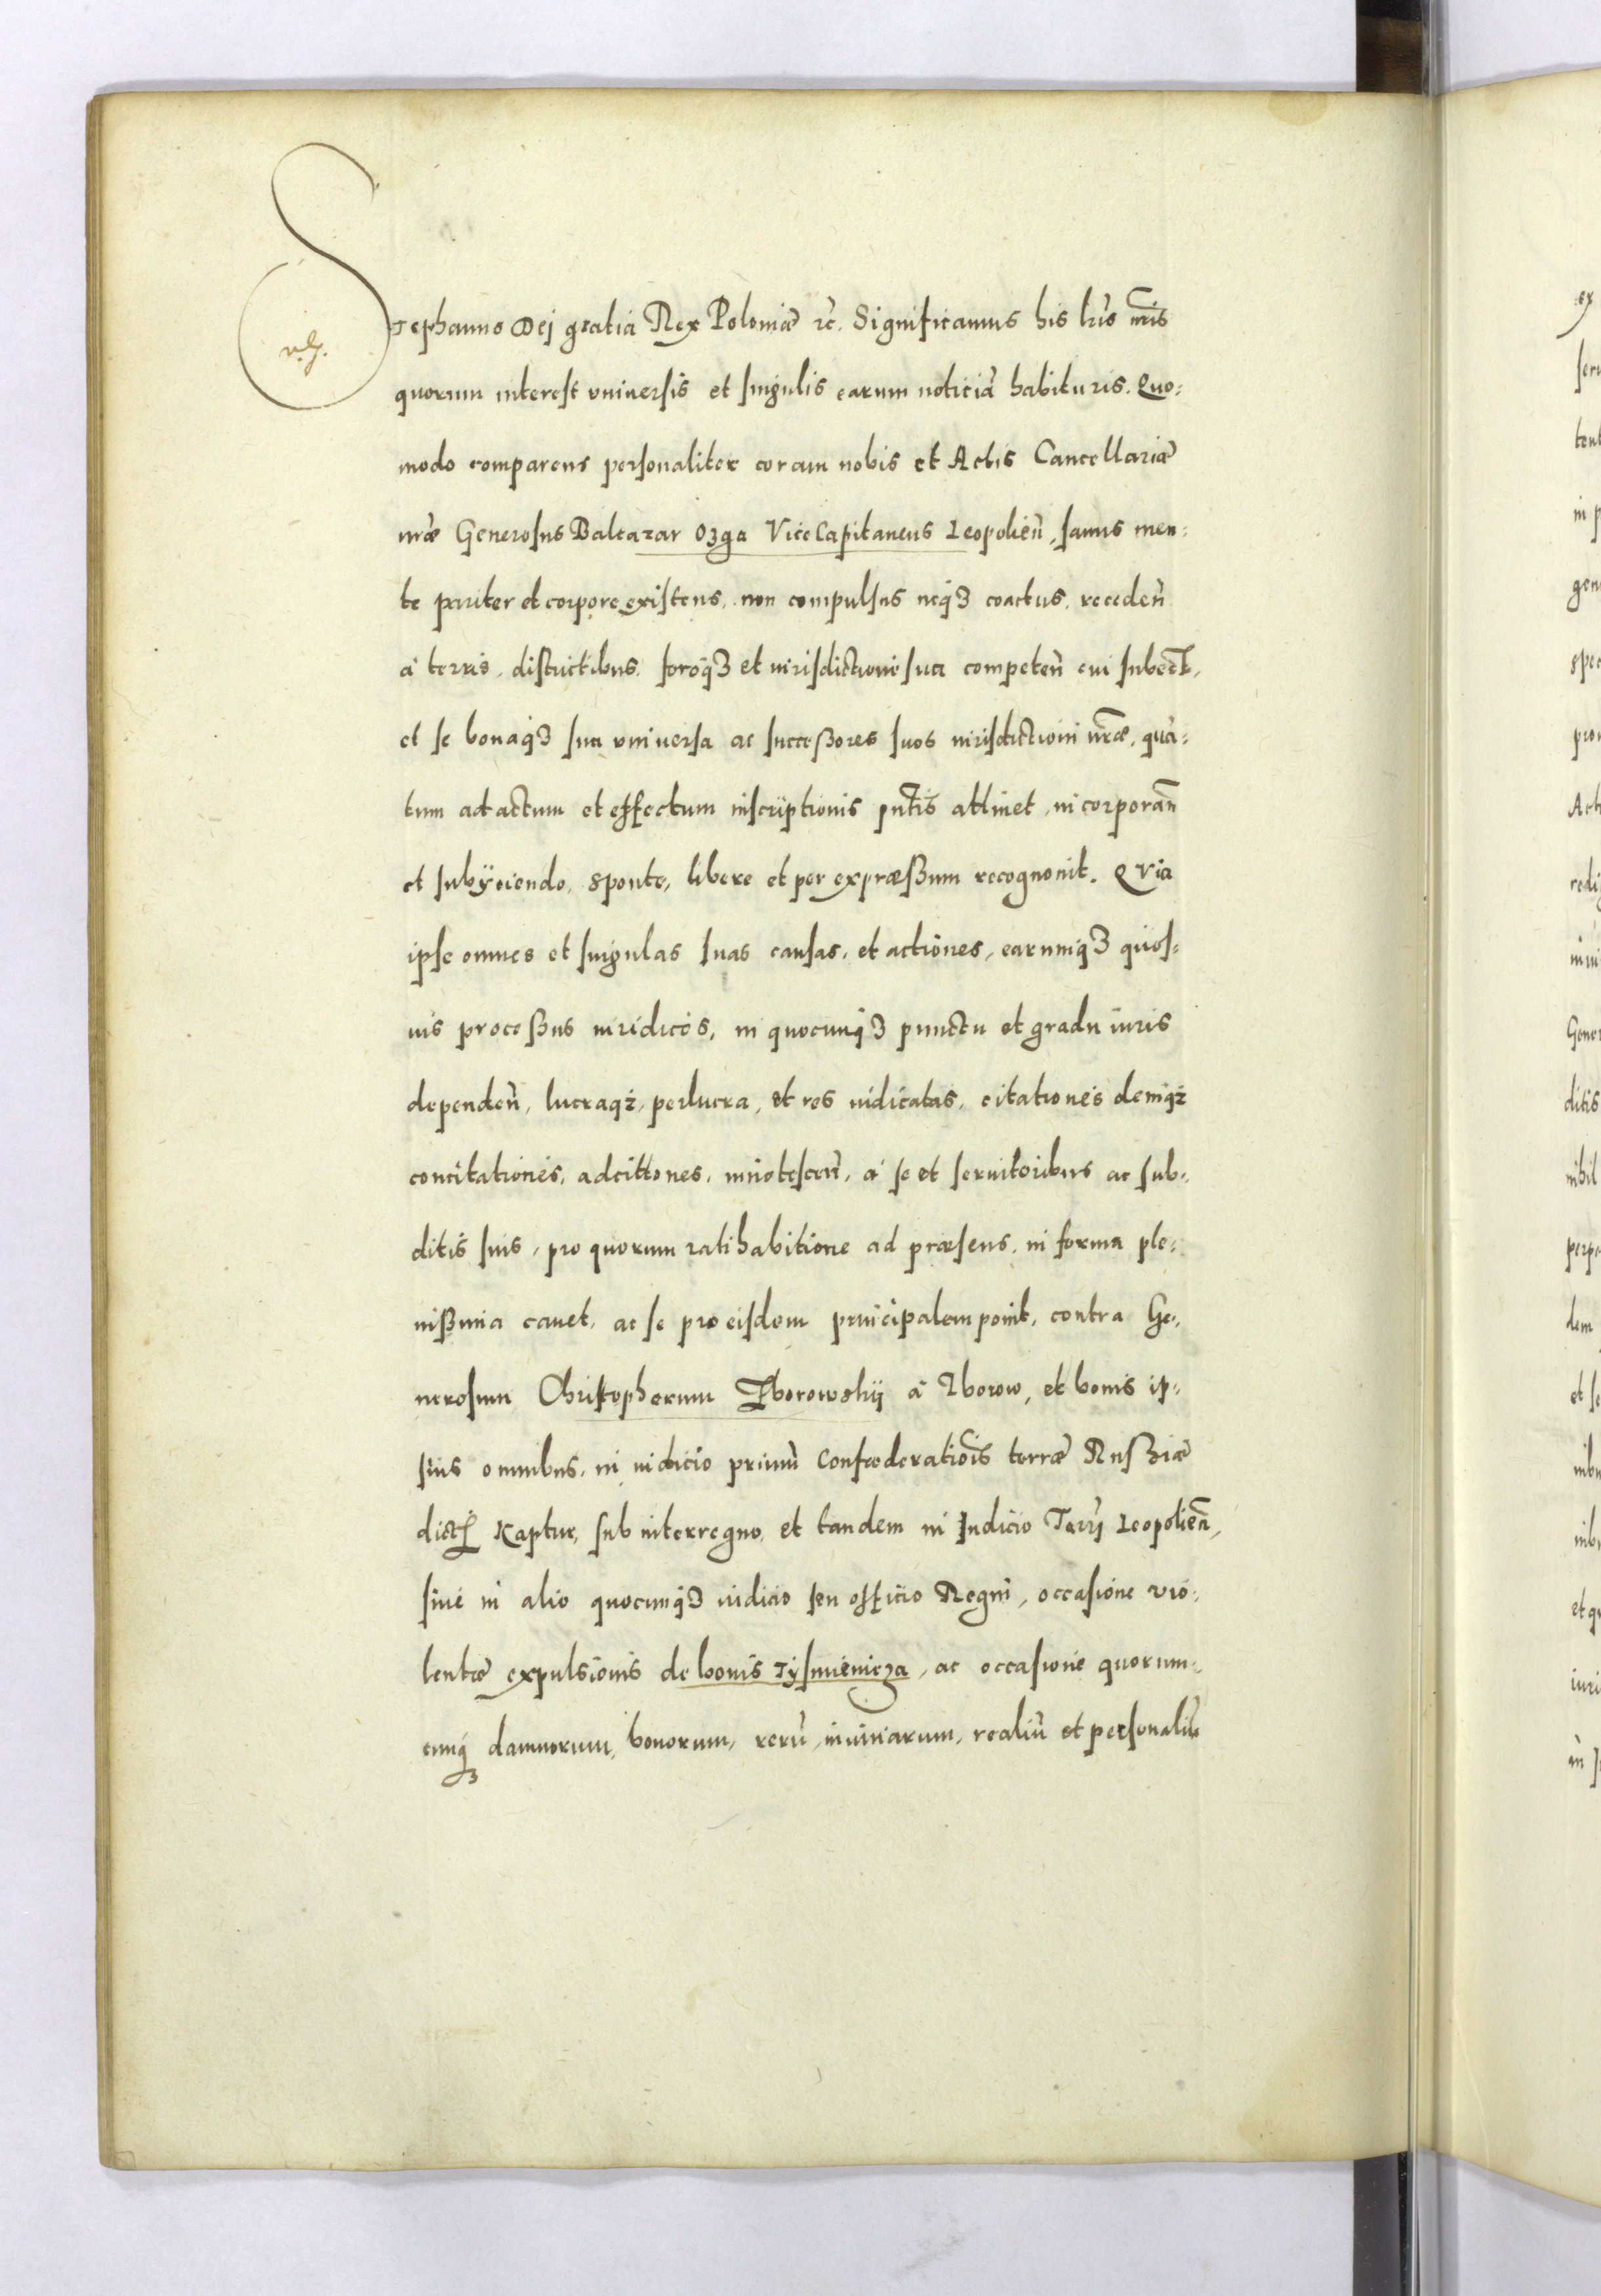 Stephanus Dej gratia Rex Poloniæ rc̃. Significamus his lrĩs nrĩs
quorum interest vniuersis et singulis earum noticiã habituris. Quo:
modo comparens personaliter coram nobis et Actis Cancellariæ
nræ Generosus Baltazar Ozga ViceCapitaneus Leopolien̄, sanus men:
te pariter et corpore existens, non compulsus neq3 coactus, receden̄
à terris, districtibus, foroq3 et iurisdictione sua competen̄ cui subect,
et se bonaq3 sua vniuersa ac successores suos iurisdictioni nr̃æ, quã:
tum ad actum et effectum inscriptionis pñtis attinet, incorporan̄
et subÿciendo, sponte, libere et per expræssum recognouit. Quia
ipse omnes et singulas suas causas, et actiones, earumq3 quos:
uis processus iuridicos, in quocunq3 punctu et gradu iuris
dependen̄, lucraq3, perlucra, et res iudicatas, citationes deniq3
concitationes, adcitõnes, innotescen̄, à se et seruitoribus ac sub:
ditis suis, pro quorum ratihabitione ad præsens, in forma ple:
nissima cauet, ac se pro eisdem principalem ponit, contra Ge:
nerosum Christopherum Zborowskij à Zborow, et bonis ip:
sius omnibus, in iudicio primũ Confœderatiõis terræ Russiæ
dict Kaptur, sub interregno, et tandem in Judicio Terrj Leopolien̄,
siue in alio quocunq3 iudicio seu officio Regni, occasione vio:
lentæ expulsionis de bonis Tÿsmienicza, ac occasione quorum:
cunq3 damnorum, bonorum, rerũ, iniuriarum, realiũ et personaliũ